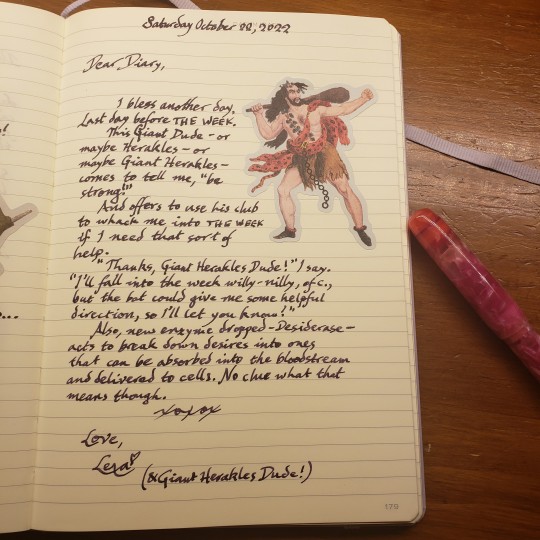 Saturday October 22, 2022
Dear Diary,
I bless another day.
Last day before THE WEEK.
This Giant Dude - or
maybe Herakles - or
maybe Giant Herakles -
comes to tell me, "be
strong!"
And offers to use his club
to whack me into THE WEEK
if I need that sort of
help.
"Thanks, Giant Herakles Dude!" I say.
"I'll fall into the week willy-nilly, ofc.,
but the bat could give me some helpful
direction, so I'll let you know!"
Also, new enzyme dropped - Desiderase -
acts to break down desires into ones
that can be absorbed into the bloodstream
and delivered to cells. No clue what that
means though.
xoxox
Love,
Lexa
(& Giant Herakles Dude!)
179